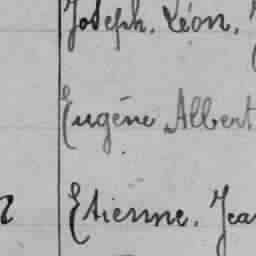 Joseph. Léon.
Eugène Albert
Etienne. Jea